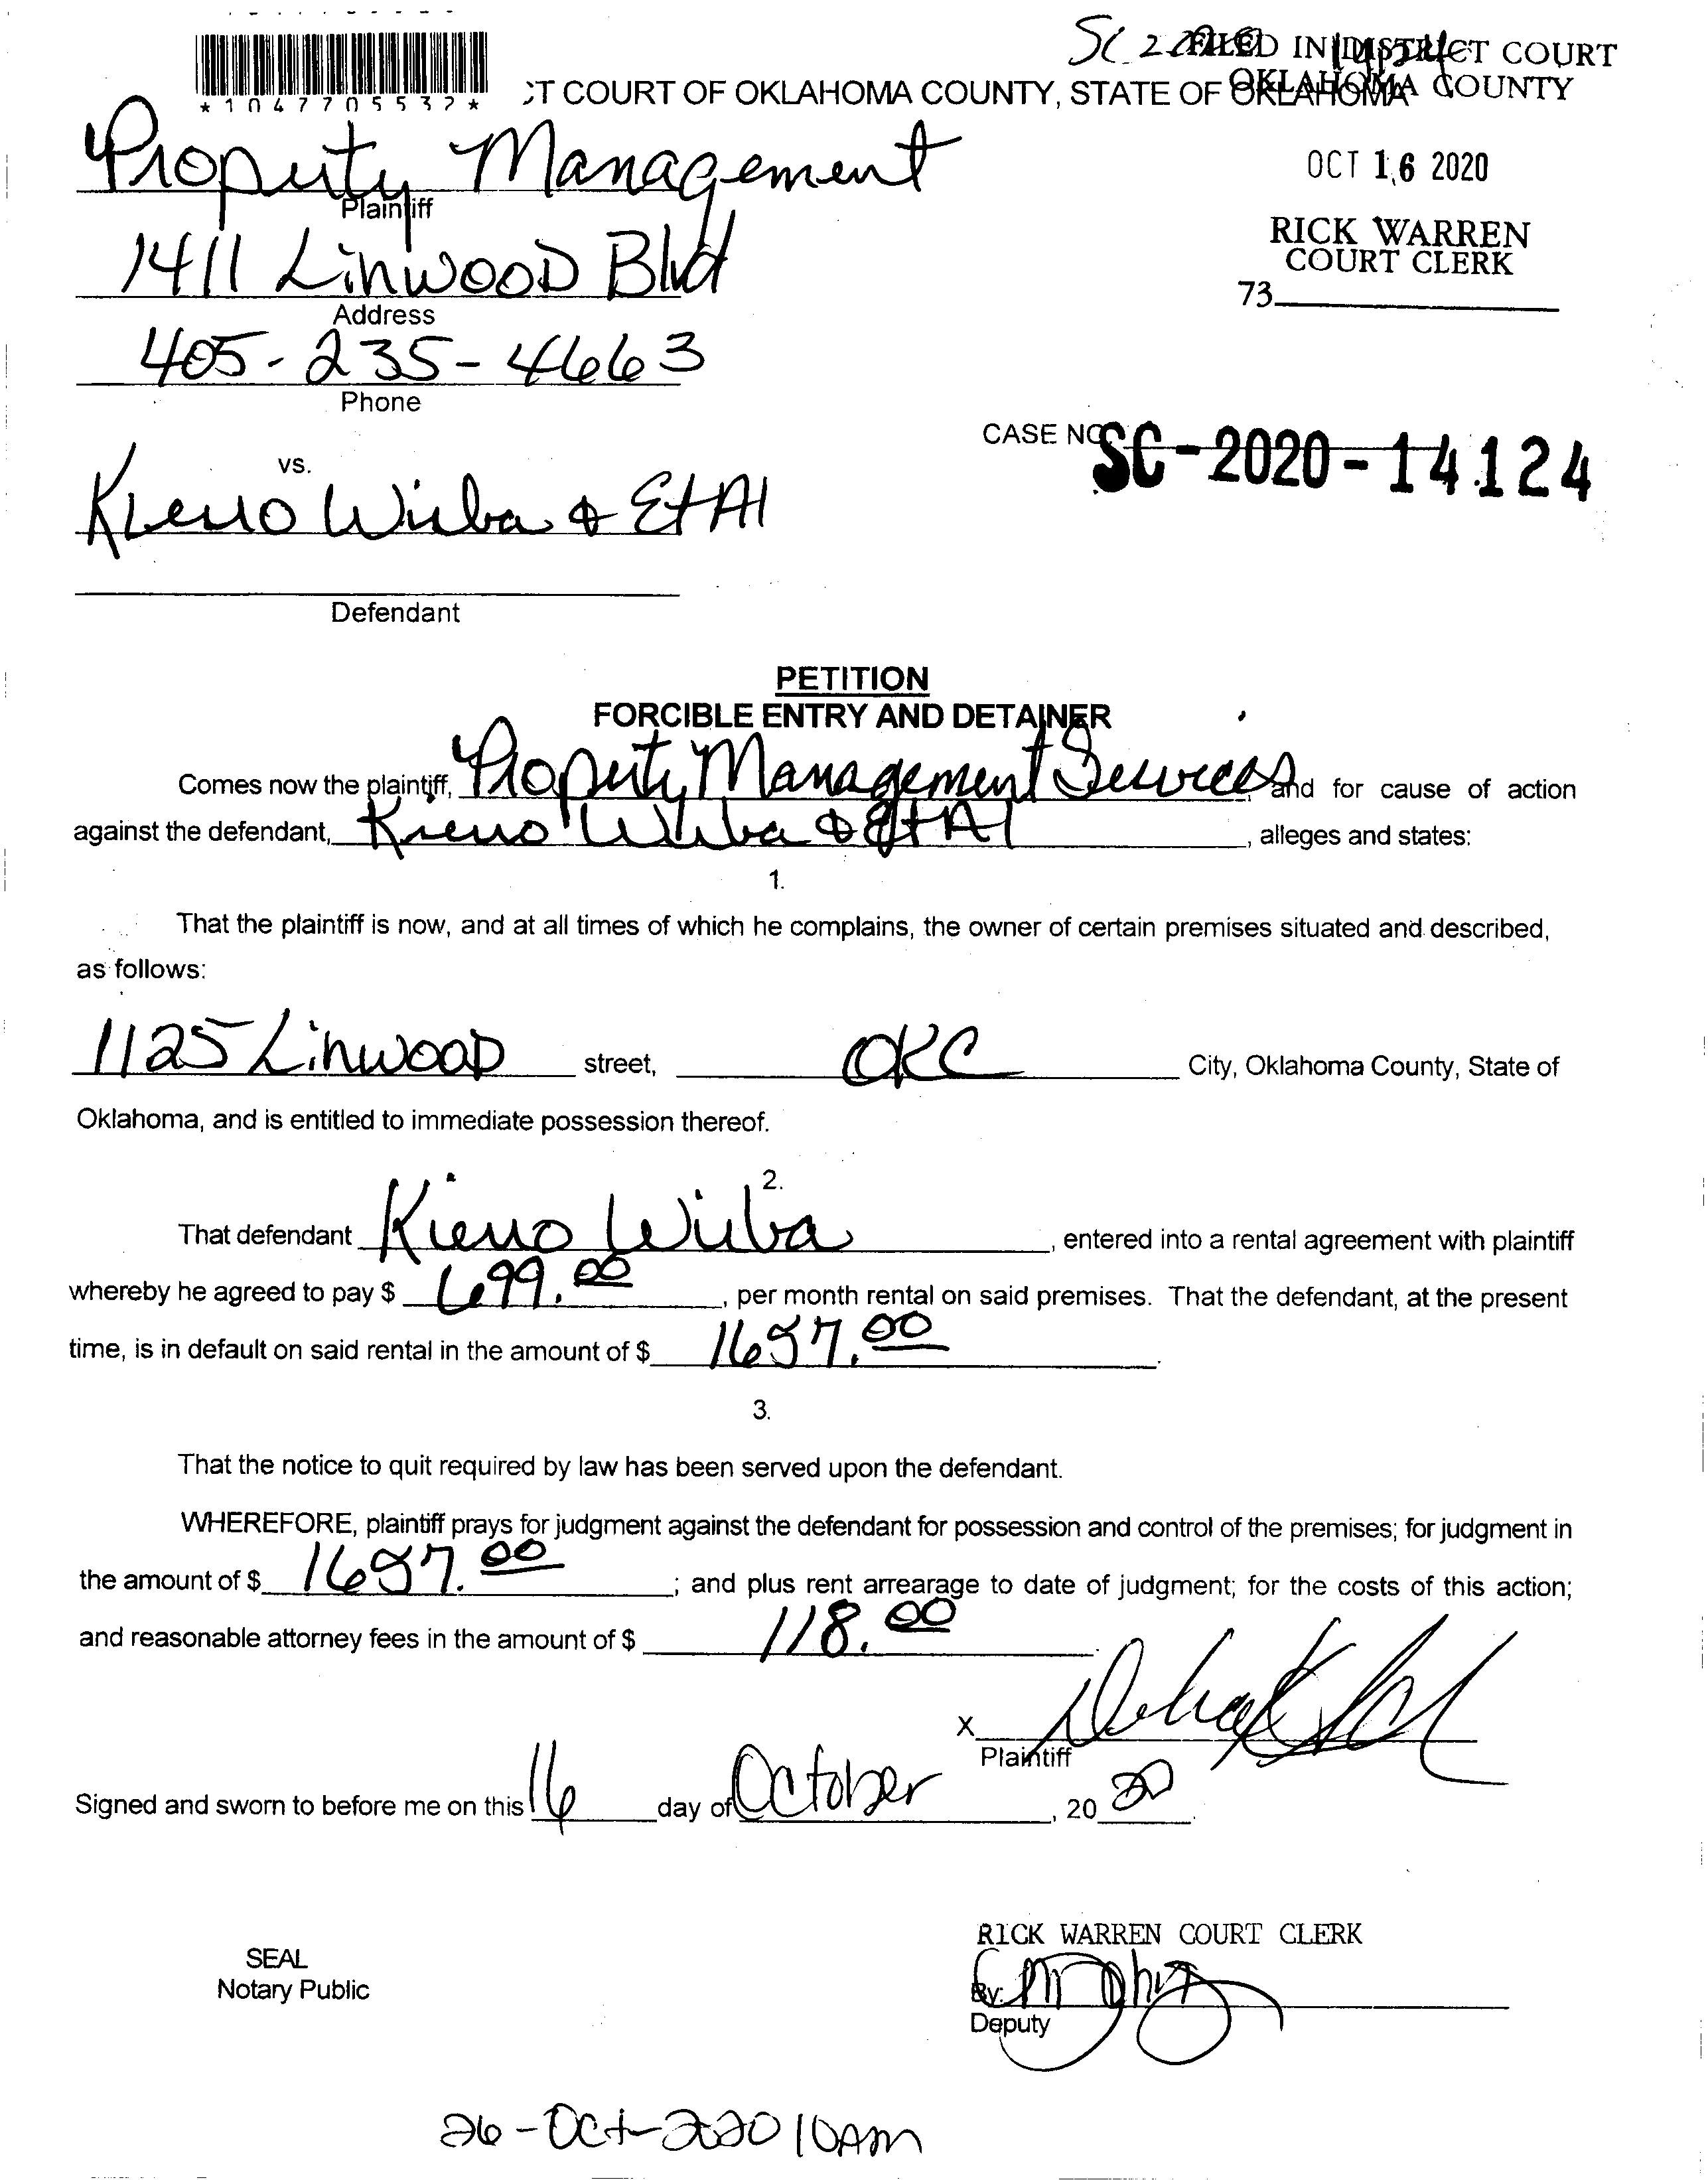 *1047705532*
CT COURT OF OKLAHOMA COUNTY, STATE OF OKLAHOMA
FILED IN DISTRICT COURT
OKLAHOMA COUNTY
OCT 16 2020
RICK WARREN
COURT CLERK
73
Property Management
Plaintiff
1411 Linwood Blvd
Address
405-235-4663
Phone
CASE NO SC-2020-14124
vs.
& Et Al
Defendant
PETITION
FORCIBLE ENTRY AND DETAINER
Comes now the plaintiff, Property Management Services, and for cause of action
against the defendant, & Et Al, alleges and states:
1.
That the plaintiff is now, and at all times of which he complains, the owner of certain premises situated and described,
as follows:
1125 Linwood street, OKC City, Oklahoma County, State of
Oklahoma, and is entitled to immediate possession thereof.
2.
That defendant, entered into a rental agreement with plaintiff
whereby he agreed to pay $ 699.00, per month rental on said premises. That the defendant, at the present
time, is in default on said rental in the amount of $
3.
That the notice to quit required by law has been served upon the defendant.
WHEREFORE, plaintiff prays for judgment against the defendant for possession and control of the premises; for judgment in
the amount of $; and plus rent arrearage to date of judgment; for the costs of this action;
and reasonable attorney fees in the amount of $ 118.00.
X
Plaintiff
Signed and sworn to before me on this 16 day of October, 20 20.
RICK WARREN COURT CLERK
SEAL
Notary Public
By:
Deputy
26-Oct-2020 10AM